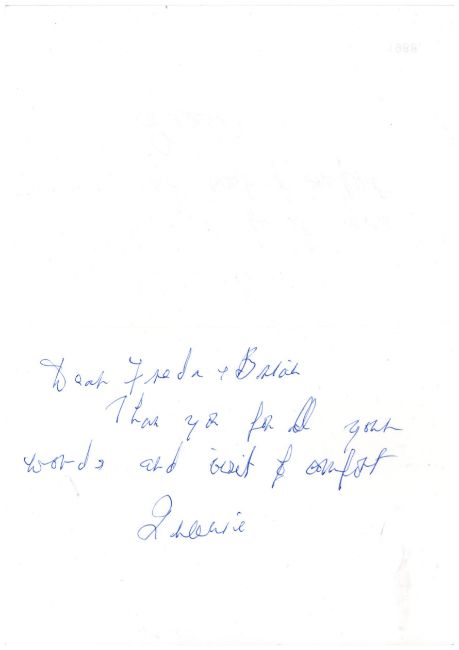 Dear Freda & Brian
Than you for all your
words and visit & comfort